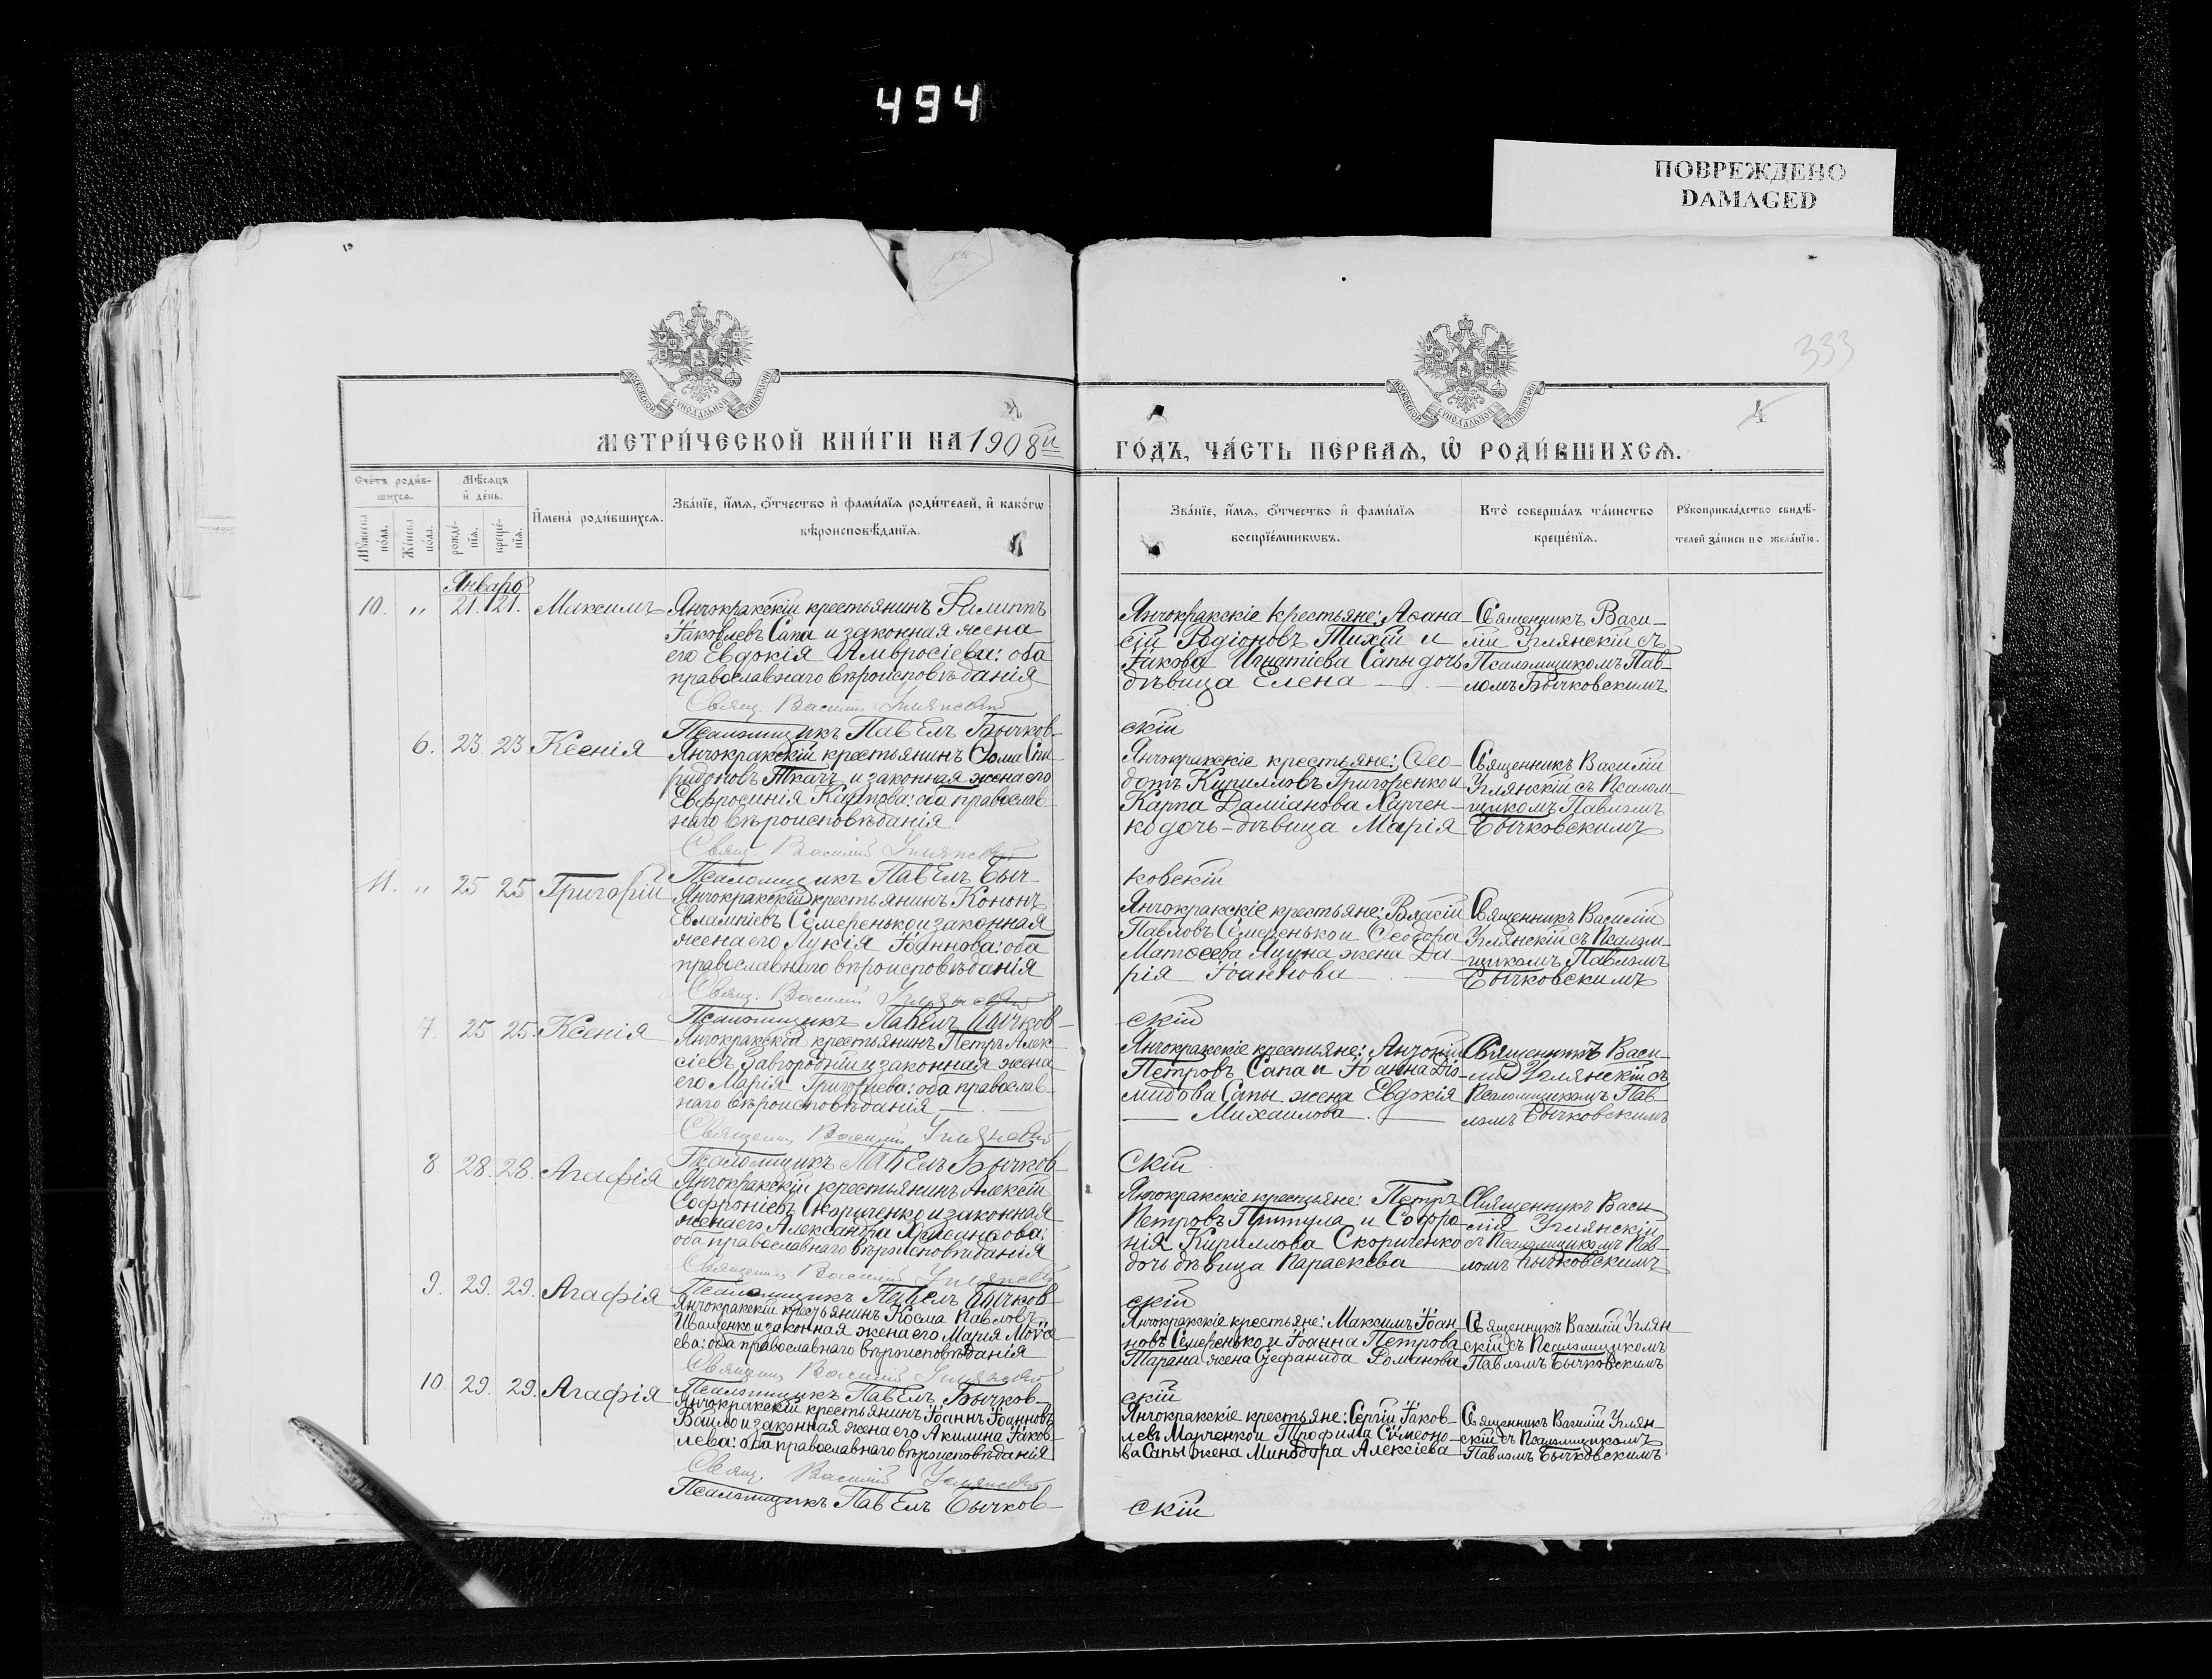 494
ПОВРЕЖДЕНО
DAMAGED
333
4
МОСКОВСКОЙ СѴНОДАЛЬНОЙ ТИПОГРАФІИ
МОСКОВСКОЙ СѴНОДАЛЬНОЙ ТИПОГРАФІИ
МЕТРИ́ЧЕСКОЙ КНИ́ГИ НА 1908й
ГО́ДЪ, ЧА́СТЬ ПЕ́РВАѦ, Ѡ҆ РОДИ́ВШИХСѦ.
Сче́тъ роди́в-
шихсѧ.
Мꙋ́жеска по́ла.
Же́нска по́ла.
Мѣ́сѧцъ
и҆ де́нь.
рожде́-
нїѧ.
креще́-
нїѧ.
И҆мена̀ роди́вшихсѧ.
Зва́нїе, и҆́мѧ, ѻ҆́тчество и҆ фами́лїѧ роди́телей, и҆ како́гѡ
вѣроисповѣ́данїѧ.
Зва́нїе, и҆́мѧ, ѻ҆́тчество и҆ фами́лїѧ
воспрїе́мникѡвъ.
Кто̀ соверша́лъ та́инство
креще́нїѧ.
Рꙋкоприкла́дство свидѣ́-
телей за́писи по жела́нїю.
Январь
10. „ 21. 21. Максимъ
Янчокракскій крестьянинъ Филиппъ
Іаковлевъ Сапа и законная жена
его Евдокія Амвросіева: оба
православнаго вѣроисповѣданія
Свящ. Василій Углянскій
Псаломщикъ Павелъ Бычков-
Янчокракскіе крестьяне: Аѳана-
сій Родіоновъ Тихій и
Іакова Игнатіева Сапы дочь
дѣвица Елена
скій
Священникъ Васи-
лій Углянскій съ
Псаломщикомъ Пав-
ломъ Бычковскимъ
6. 23. 23 Ксенія
Янчокракскій крестьянинъ Ѳома Спи-
ридоновъ Ткачъ и законная жена его
Евфросинія Карпова: оба православ-
наго вѣроисповѣданія
Свящ. Василій Углянскій
Псаломщикъ Павелъ Быч-
Янчокракскіе крестьяне: Ѳео-
дотъ Кирилловъ Григоренко и
Карпа Даміанова Харчен-
ко дочь-дѣвица Марія
ковскій
Священникъ Василій
Углянскій съ Псалом-
щикомъ Павломъ
Бычковскимъ
11. „ 25 25 Григорій
Янчокракскій крестьянинъ Кононъ
Евлампіевъ Семеренько и законная
жена его Лукія Іоаннова: оба
православнаго вѣроисповѣданія
Свящ. Василій Углянскій
Псаломщикъ Павелъ Бычков-
Янчокракскіе крестьяне: Власій
Павловъ Семеренько и Ѳеодора
Матѳеева Яцуна жена Да-
рія Іоаннова
скій
Священникъ Василій
Углянскій съ Псалом-
щикомъ Павломъ
Бычковскимъ
7. 25 25. Ксенія
Янчокракскій крестьянинъ Петръ Алек-
сіевъ Завгородній и законная жена
его Марія Григорьева: оба православ-
наго вѣроисповѣданія
Священникъ Василій Углянскій
Псаломщикъ Павелъ Бычков-
Янчокракскіе крестьяне: Антоній
Петровъ Сапа и Іоанна Діо-
мидова Сапы жена Евдокія
Михаилова
скій
Священникъ Васи-
лій Углянскій съ
Псаломщикомъ Пав-
ломъ Бычковскимъ
8. 28. 28. Агафія
Янчокракскій крестьянинъ Алексій
Софроніевъ Скориченко и законная
жена его Александра Хрисанфова:
оба православнаго вѣроисповѣданія
Священникъ Василій Углянскій
Псаломщикъ Павелъ Бычков-
Янчокракскіе крестьяне: Петръ
Петровъ Притула и Софро-
нія Кириллова Скориченко
дочь дѣвица Параскева
скій
Священникъ Васи-
лій Углянскій
съ Псаломщикомъ Пав-
ломъ Бычковскимъ
9. 29. 29. Агафія
Янчокракскій крестьянинъ Косма Павловъ
Иващенко и законная жена его Марія Моѵсе-
ева: оба православнаго вѣроисповѣданія
Священникъ Василій Углянскій
Псаломщикъ Павелъ Бычков-
Янчокракскіе крестьяне: Максимъ Іоан-
новъ Семеренько и Іоанна Петрова
Тарана жена Стефанида Романова
скій
Священникъ Василій Углян-
скій съ Псаломщикомъ
Павломъ Бычковскимъ
10. 29. 29. Агафія
Янчокракскій крестьянинъ Іоаннъ Іоанновъ
Вайло и законная жена его Акилина Іаков-
лева: оба православнаго вѣроисповѣданія
Свящ. Василій Углянскій
Псаломщикъ Павелъ Бычков-
Янчокракскіе крестьяне: Сергій Іаков-
левъ Марченко и Трофима Сѵмеоно-
ва Сапы жена Минодора Алексіева
скій
Священникъ Василій Углян-
скій съ Псаломщикомъ
Павломъ Бычковскимъ